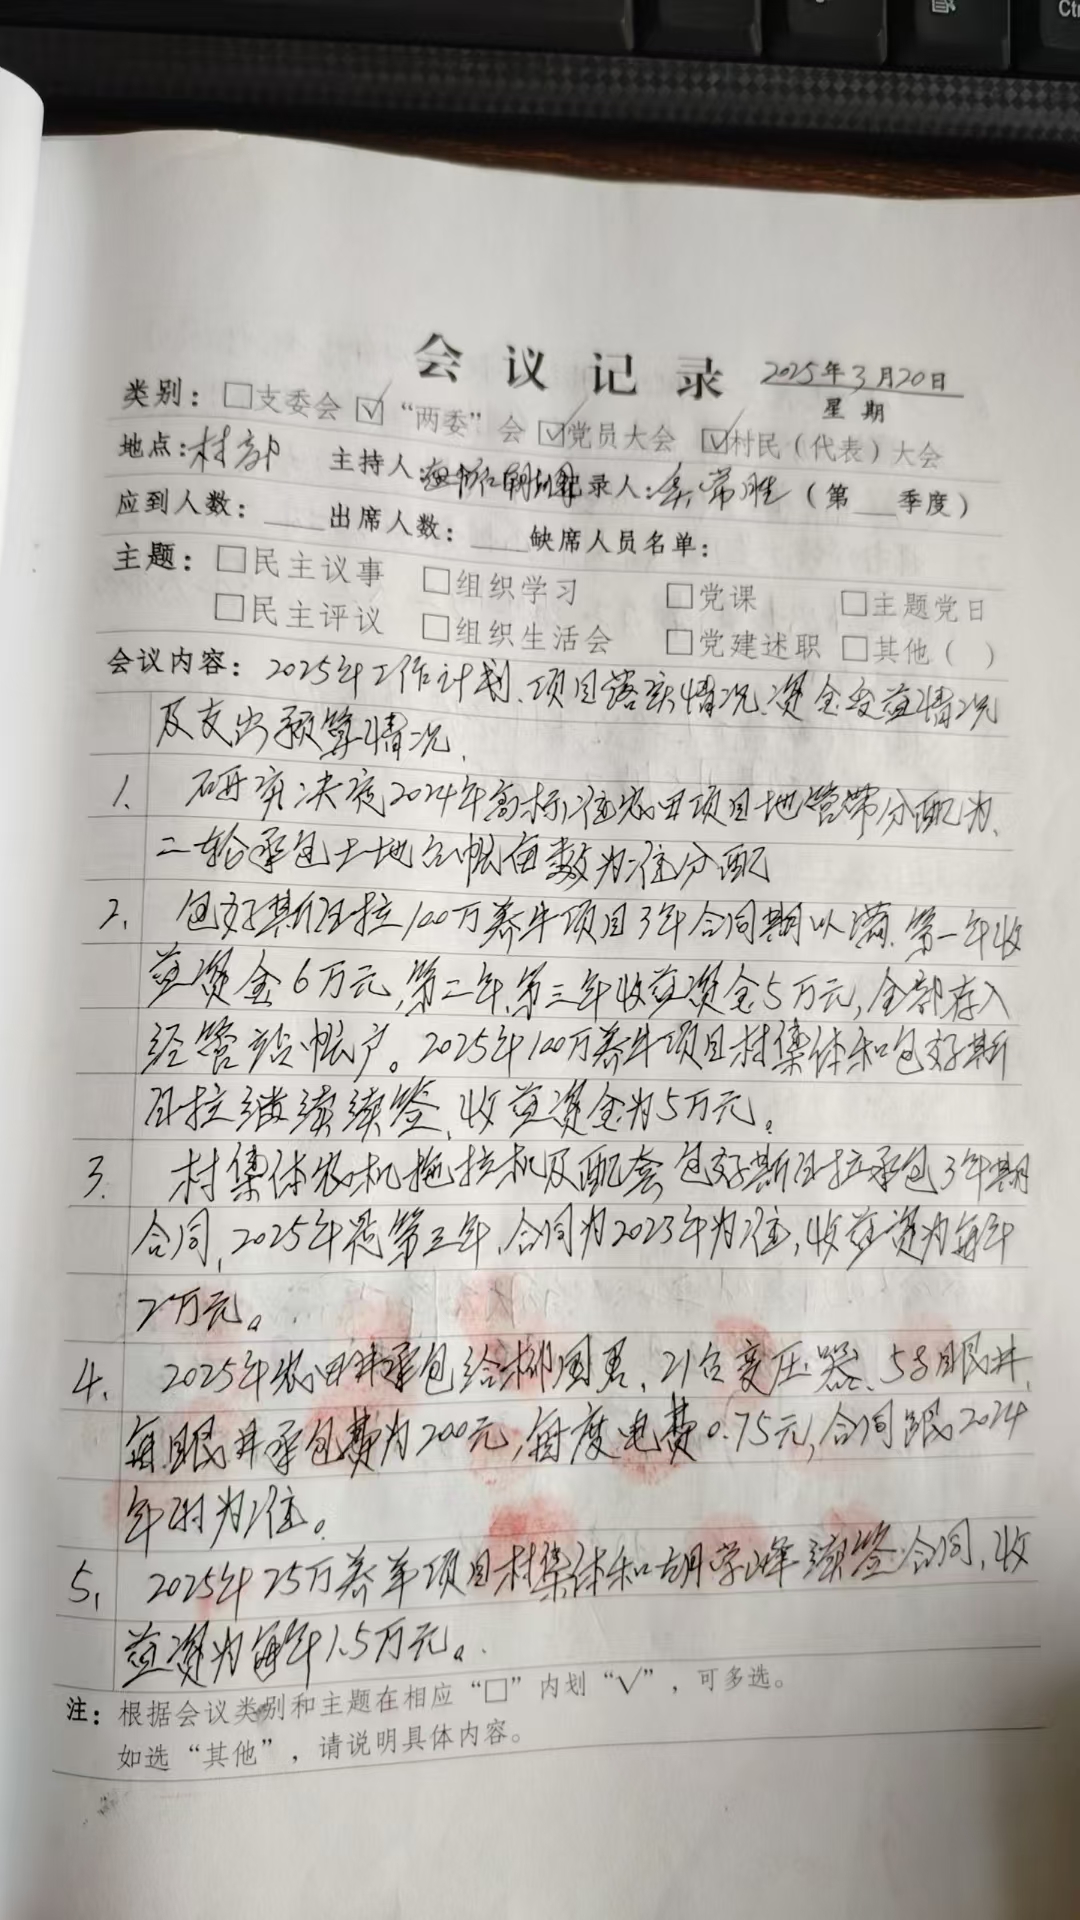 Ctr
会议记录 2025年3月20日
星期
类别：□支委会 ☑“两委”会 ☑党员大会 ☑村民（代表）大会
地点：村部 主持人： 记录人：吴常胜（第 季度）
应到人数： 出席人数： 缺席人员名单：
主题：□民主议事 □组织学习 □党课 □主题党日
□民主评议 □组织生活会 □党建述职 □其他（ ）
会议内容：2025年工作计划、项目落实情况、资金受益情况
及支出预算情况.
1. 研究决定2024年高标准农田项目地管带分配为、
二轮承包土地台帐亩数为准分配
2. 包好斯日拉100万养牛项目3年合同期以满、第一年收
益资金6万元,第二年、第三年收益资金5万元,全部存入
经管站帐户。2025年100万养牛项目村集体和包好斯
日拉继续续签、收益资金为5万元。
3. 村集体农机拖拉机及配套包好斯日拉承包3年期
合同,2025年是第三年,合同为2023年为准,收益资为每年
2万元。
4. 2025年农田井承包给 国君、21台变压器、58眼井,
每眼井承包费为200元,每度电费0.75元,合同跟2024
年时为准。
5, 2025年25万养羊项目村集体和胡学峰续签合同,收
益资为每年1.5万元。
注：根据会议类别和主题在相应“□”内划“√”，可多选。
如选“其他”，请说明具体内容。